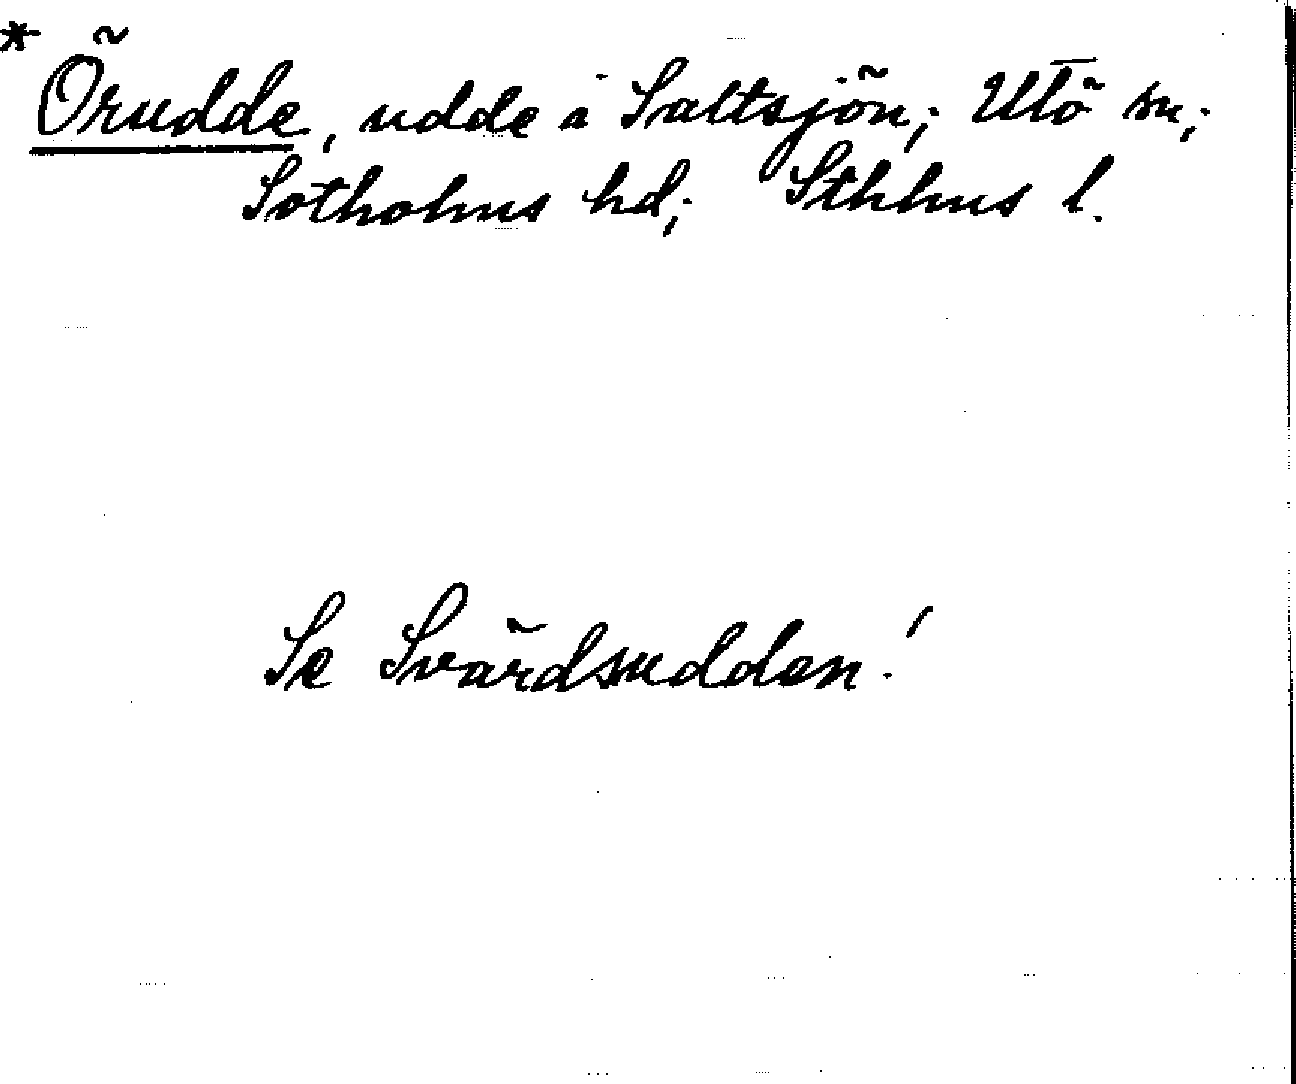 * Örudde, udde i Saltsjön; Utö sn;
Sotholms hd; Sthlms l.
Se Svärdsudden!